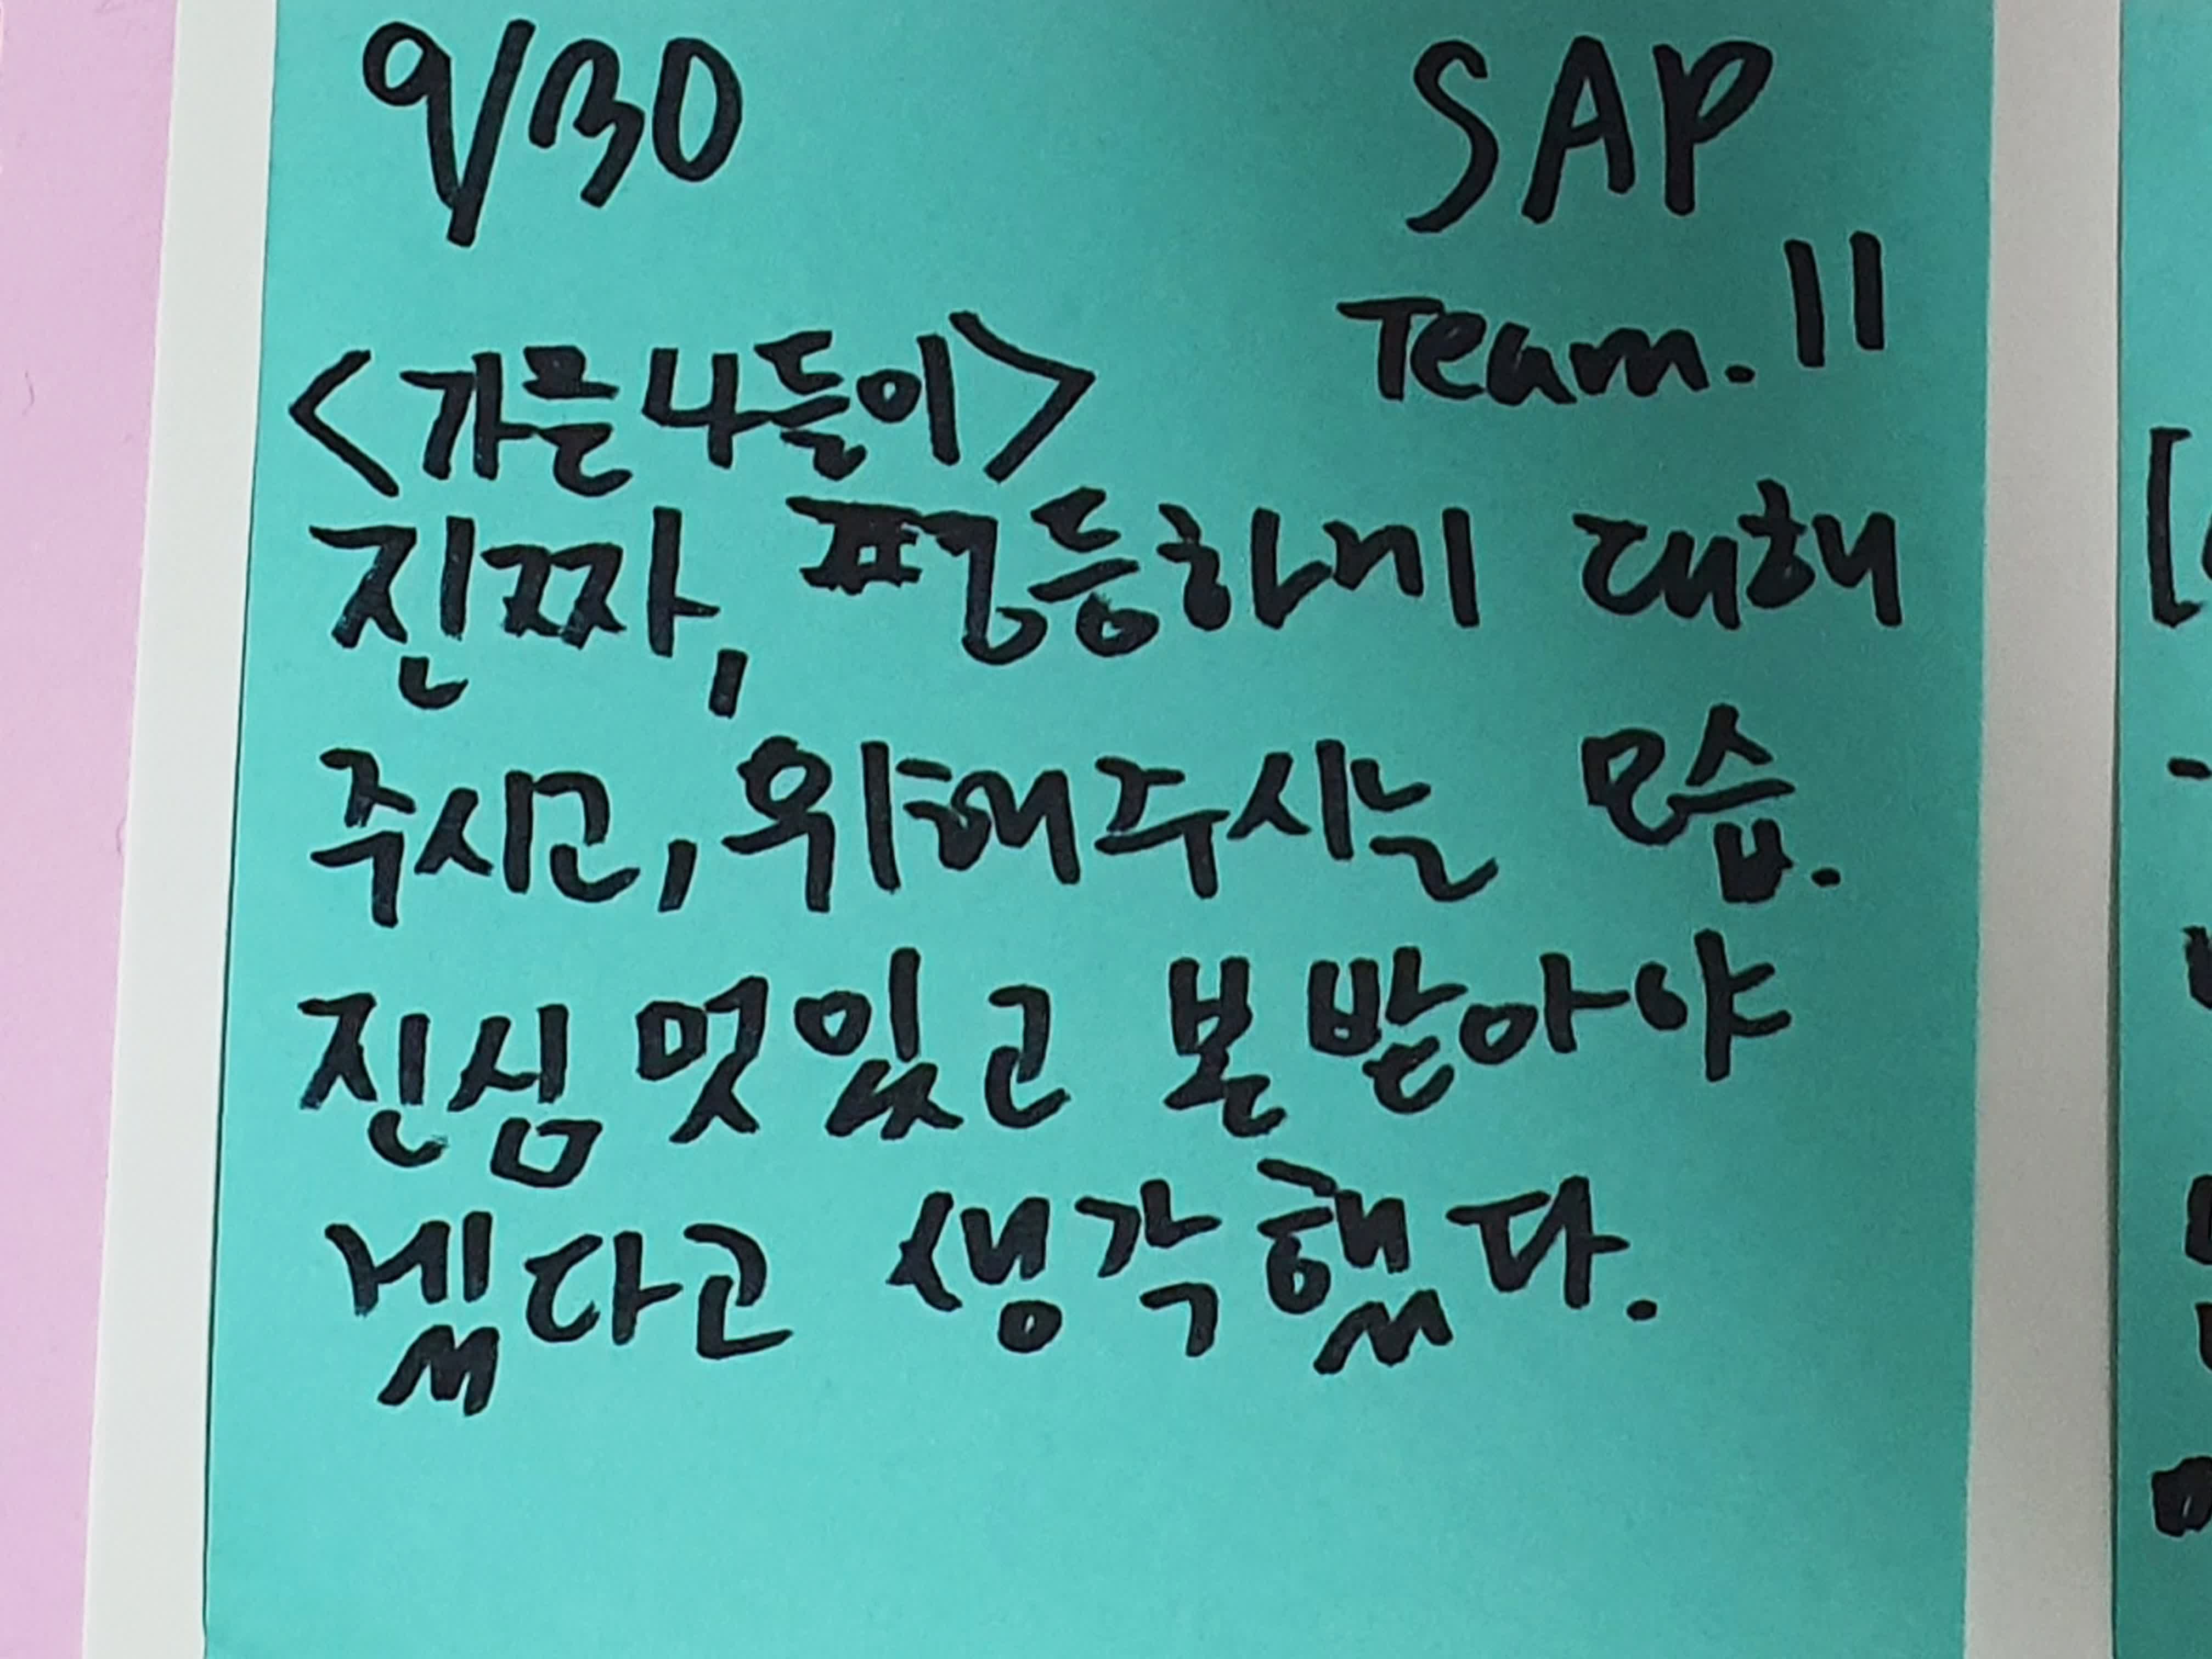 9/30
SAP
Team. 11
<가을나들이>
진짜, 평등하게 대해
주시고, 위해주시는 모습.
진심 멋있고 본받아야
겠다고 생각했다.